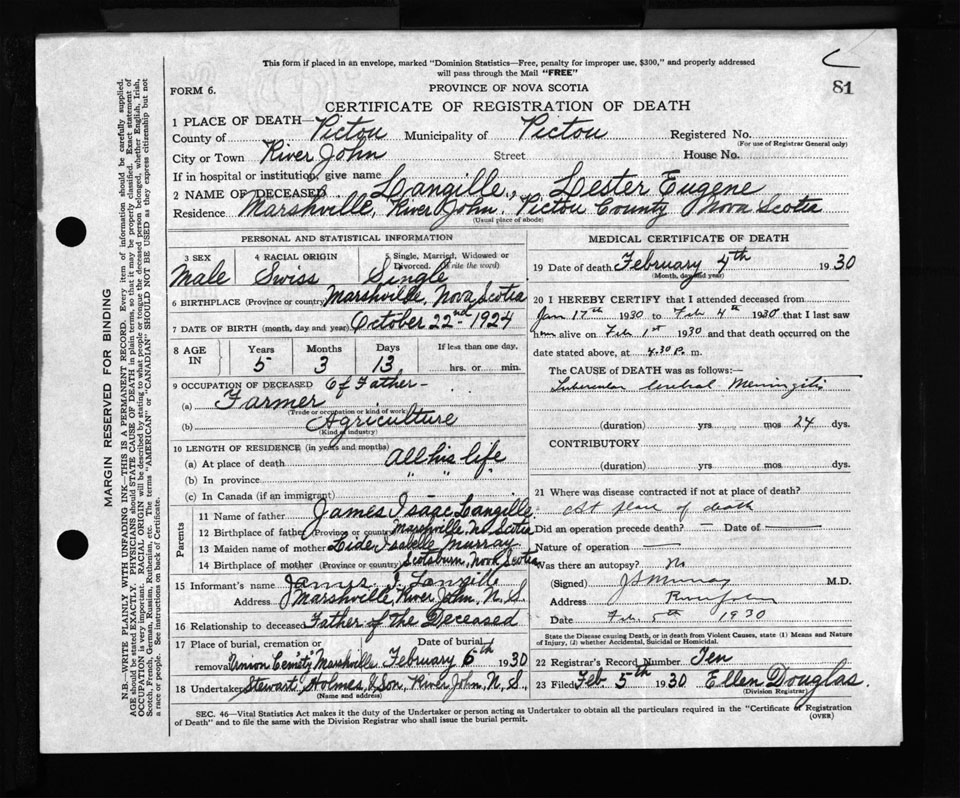 This form if placed in an envelope, marked "Dominion Statistics—Free, penalty for improper use, $300," and properly addressed
will pass through the Mail "FREE"
81
FORM 6.
PROVINCE OF NOVA SCOTIA
CERTIFICATE OF REGISTRATION OF DEATH
1 PLACE OF DEATH—
County of Pictou Municipality of Pictou Registered No.
(For use of Registrar General only)
City or Town River John Street House No.
If in hospital or institution, give name
2 NAME OF DECEASED Langille, Lester Eugene
Residence Marshville, River John, Pictou County Nova Scotia
(Usual place of abode)
PERSONAL AND STATISTICAL INFORMATION
3 SEX 4 RACIAL ORIGIN 5 Single, Married, Widowed or
Divorced. (Write the word)
Male Swiss Single
6 BIRTHPLACE (Province or country) Marshville, Nova Scotia
7 DATE OF BIRTH (month, day and year) October 22nd 1924
8 AGE IN Years Months Days If less than one day.
5 3 13 hrs. or min.
9 OCCUPATION OF DECEASED Of Father -
(a) Farmer
(Trade or occupation or kind of work)
(b) Agriculture
(Kind of industry)
10 LENGTH OF RESIDENCE (in years and months)
(a) At place of death All his life
(b) In province " " "
(c) In Canada (if an immigrant)
Parents
11 Name of father James Isaac Langille
12 Birthplace of father (Province or country) Marshville, N. Scotia
13 Maiden name of mother Isabelle Murray
14 Birthplace of mother (Province or country) Scotsburn, Nova Scotia
15 Informant's name James I. Langille
Address Marshville, River John, N. S.
16 Relationship to deceased Father of the Deceased
17 Place of burial, cremation or Date of burial
removal Union Cem'ty Marshville February 6th 1930
18 Undertaker Stewart Holmes & Son, River John, N. S.,
(Name and address)
MEDICAL CERTIFICATE OF DEATH
19 Date of death February 4th 1930
(Month, day and year)
20 I HEREBY CERTIFY that I attended deceased from
Jan 17th 1930 to Feb 4th 1930 that I last saw
him alive on Feb 1st 1930 and that death occurred on the
date stated above, at 4.30 P. m.
The CAUSE of DEATH was as follows:—
Tubercular Cerebral Meningitis
(duration) yrs mos 24 dys.
CONTRIBUTORY
(duration) yrs. mos. dys.
21 Where was disease contracted if not at place of death?
At place of death
Did an operation precede death? — Date of —
Nature of operation —
Was there an autopsy? No
(Signed) J S Murray M.D.
Address River John
Date Feb. 5th 1930
State the Disease causing Death, or in death from Violent Causes, state (1) Means and Nature
of Injury, (2) whether Accidental, Suicidal or Homicidal.
22 Registrar's Record Number Ten
23 Filed Feb. 5th 1930 Ellen Douglas.
(Division Registrar)
SEC. 46—Vital Statistics Act makes it the duty of the Undertaker or person acting as Undertaker to obtain all the particulars required in the "Certificate of Registration
of Death" and to file the same with the Division Registrar who shall issue the burial permit.
(OVER)
MARGIN RESERVED FOR BINDING
N.B.—WRITE PLAINLY WITH UNFADING INK—THIS IS A PERMANENT RECORD. Every item of information should be carefully supplied.
AGE should be stated EXACTLY. PHYSICIANS should STATE CAUSE OF DEATH in plain terms, so that it may be properly classified. Exact statement of
OCCUPATION is very important. RACIAL ORIGIN will be described by stating to what people or tongue the deceased person belonged, whether English, Irish,
Scotch, French, German, Russian, Ruthenian, etc. The terms "AMERICAN" or "CANADIAN" SHOULD NOT BE USED as they express citizenship but not
a race or people. See instructions on back of Certificate.